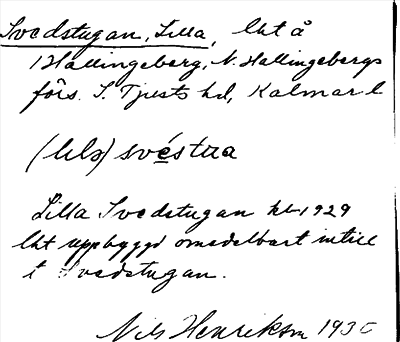 Svedstugan, Lilla, lht å
Hallingeberg, N. Hallingebergs
förs. S. Tjusts hd, Kalmar l
(lilə) svéstɯa
Lilla Svedstugan kb 1929
lht uppbyggd omedelbart intill
t Svedstugan.
Nils Henrikson 1930